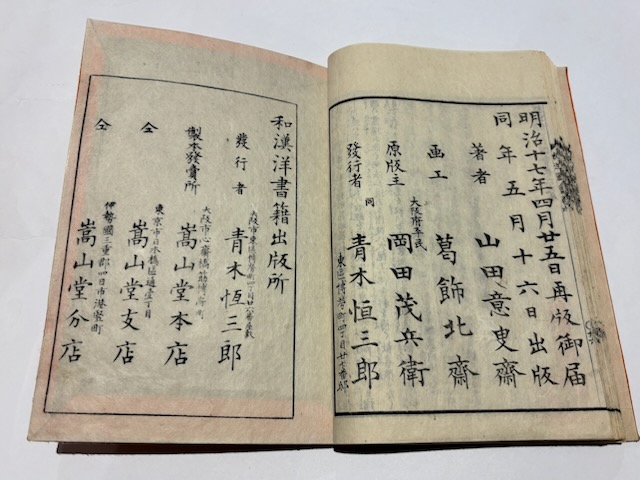 明治十七年四月廿五日再版御届
同年五月十六日出版
著者 山田意叟齋
画工 葛飾北齋
原版主 大阪府平民 岡田茂兵衛
發行者 同 青木恒三郎
東區博労町四丁目廿七番邸
和漢洋書籍出版所
發行者 青木恒三郎
製本發賣所
大阪市心齋橋筋博労町
嵩山堂本店
仝
東京市日本橋區通壹丁目
嵩山堂支店
仝
伊勢國三重郡四日市港
嵩山堂分店